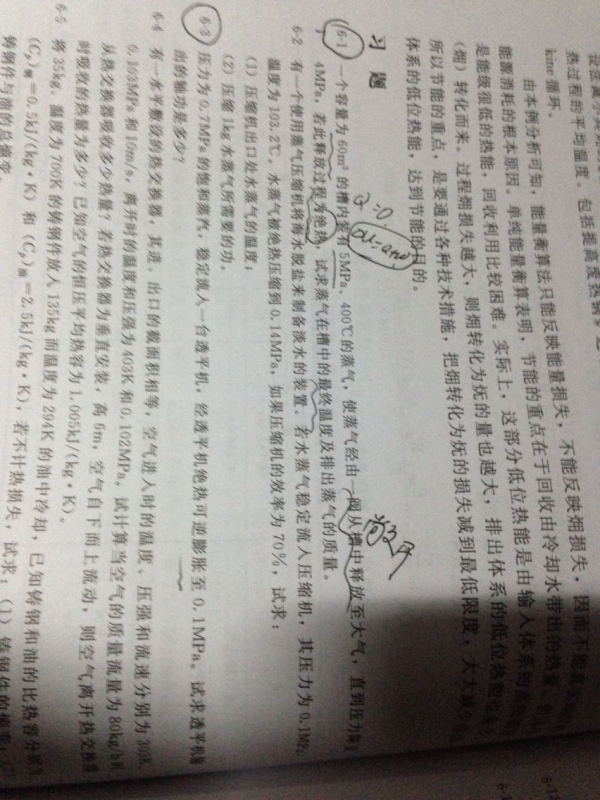 热过程的平均温度。包括提高度热
kine 循环。
由本例分析可知，能量衡算法只能反映能量损失，不能反映㶲损失，因而不能真
能源消耗的根本原因。单纯能量衡算表明，节能的重点在于回收由冷却水带出的热量，
是能级很低的热能，回收利用比较困难。实际上，这部分低位热能是由输入体系的
(㶲) 转化而来，过程㶲损失越大，则㶲转化为㶲的量也越大，排出体系的低位热能也
所以节能的重点，是要通过各种技术措施，把㶲转化为㶲的损失减到最低限度，大大减少
体系的低位热能，达到节能的目的。
习 题
Q=0
6-1 一个容量为 60m³ 的槽内装有 5MPa、400℃的蒸气，使蒸气经由一阀从槽中释放至大气，直到压力
4MPa，若此释放过程为绝热，试求蒸气在槽中的最终温度及排出蒸气的质量。
6-2 有一个使用蒸气压缩机将海水脱盐来制备淡水的装置。若水蒸气稳定流入压缩机，其压力为 0.1MPa，
温度为 103.0℃，水蒸气被绝热压缩到 0.14MPa，如果压缩机的效率为 70%，试求：
(1) 压缩机出口处水蒸气的温度；
(2) 压缩 1kg 水蒸气所需要的功。
6-3 压力为 0.7MPa 的饱和蒸汽，稳定流入一台透平机，经透平机绝热可逆膨胀至 0.1MPa。试求透平机输
出的轴功是多少？
6-4 有一水平敷设的热交换器，其进、出口的截面积相等，空气进入时的温度、压强和流速分别为 303K、
0.103MPa 和 10m/s，离开时的温度和压强为 403K 和 0.102MPa。试计算当空气的质量流量为 80kg/h 时
从热交换器吸收多少热量？若热交换器为垂直安装，高 6m，空气自下而上流动，则空气离开热交换器
时吸收的热量为多少？已知空气的恒压平均热容为 1.005kJ/(kg·K)。
6-5 将 35kg、温度为 700K 的铸钢件放入 135kg 而温度为 294K 的油中冷却，已知铸钢和油的比热容分别为
(Cp)钢=0.5kJ/(kg·K) 和 (Cp)油=2.5kJ/(kg·K)，若不计热损失，试求：(1) 铸钢件的熵变；
铸钢件与油的总熵变。